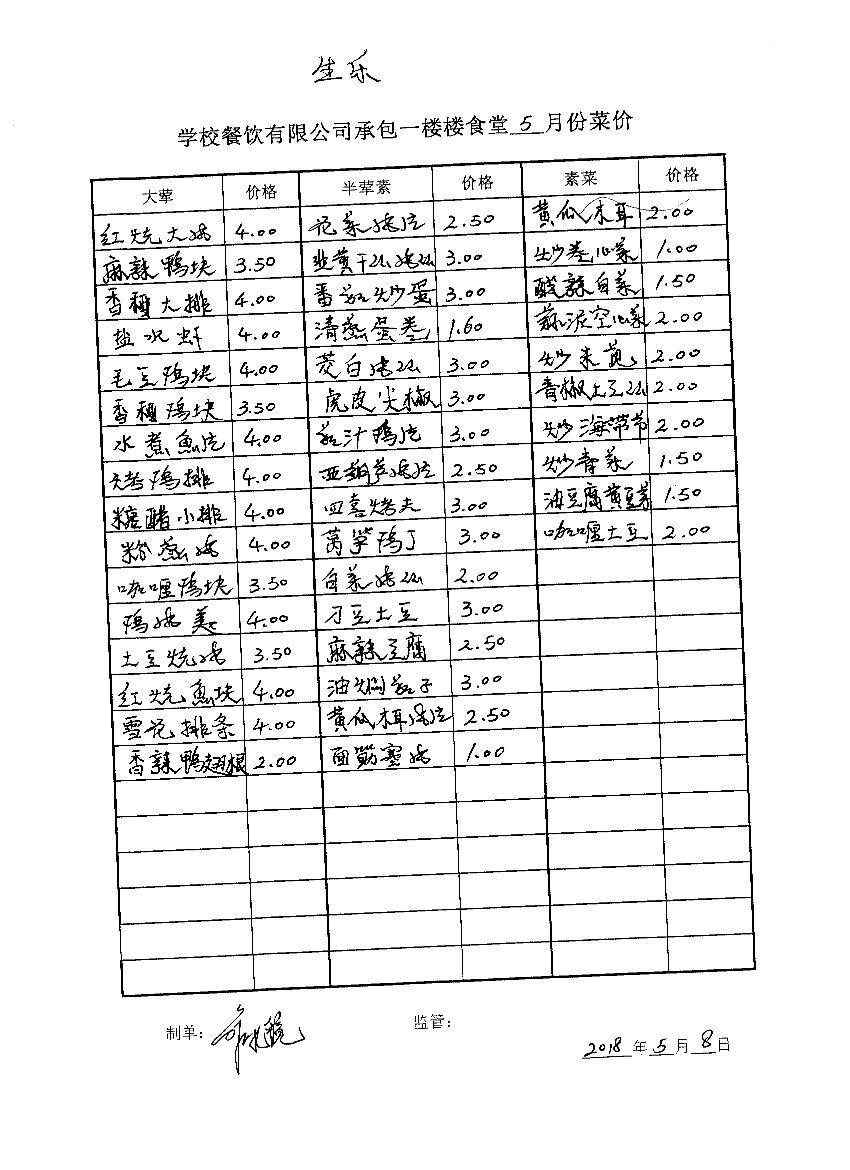 生乐
学校餐饮有限公司承包一楼楼食堂 5 月份菜价
大荤 价格 半荤素 价格 素菜 价格
红烧大肉 4.00 花菜肉片 2.50 黄瓜木耳 2.00
麻辣鸭块 3.50 韭黄干丝肉丝 3.00 炒卷心菜 1.00
香稹大排 4.00 番茄炒蛋 3.00 酸辣白菜 1.50
盐水虾 4.00 清蒸蛋卷 1.60 蒜泥空心菜 2.00
毛豆鸡块 4.00 茭白肉丝 3.00 炒米苋 2.00
香稹鸡块 3.50 虎皮尖椒 3.00 青椒土豆丝 2.00
水煮鱼片 4.00 茄汁鸡片 3.00 炒海带节 2.00
烤鸡排 4.00 西葫芦肉片 2.50 炒青菜 1.50
糖醋小排 4.00 四喜烤夫 3.00 油豆腐黄豆芽 1.50
粉蒸肉 4.00 莴笋鸡丁 3.00 咖喱土豆 2.00
咖喱鸭块 3.50 白菜肉丝 2.00
鸡肉羹 4.00 刁豆土豆 3.00
土豆烧肉 3.50 麻辣豆腐 2.50
红烧鱼块 4.00 油焖茄子 3.00
雪花排条 4.00 黄瓜木耳肉片 2.50
香辣鸭翅根 2.00 面筋塞肉 1.00
制单: 监管:
2018 年 5 月 8 日